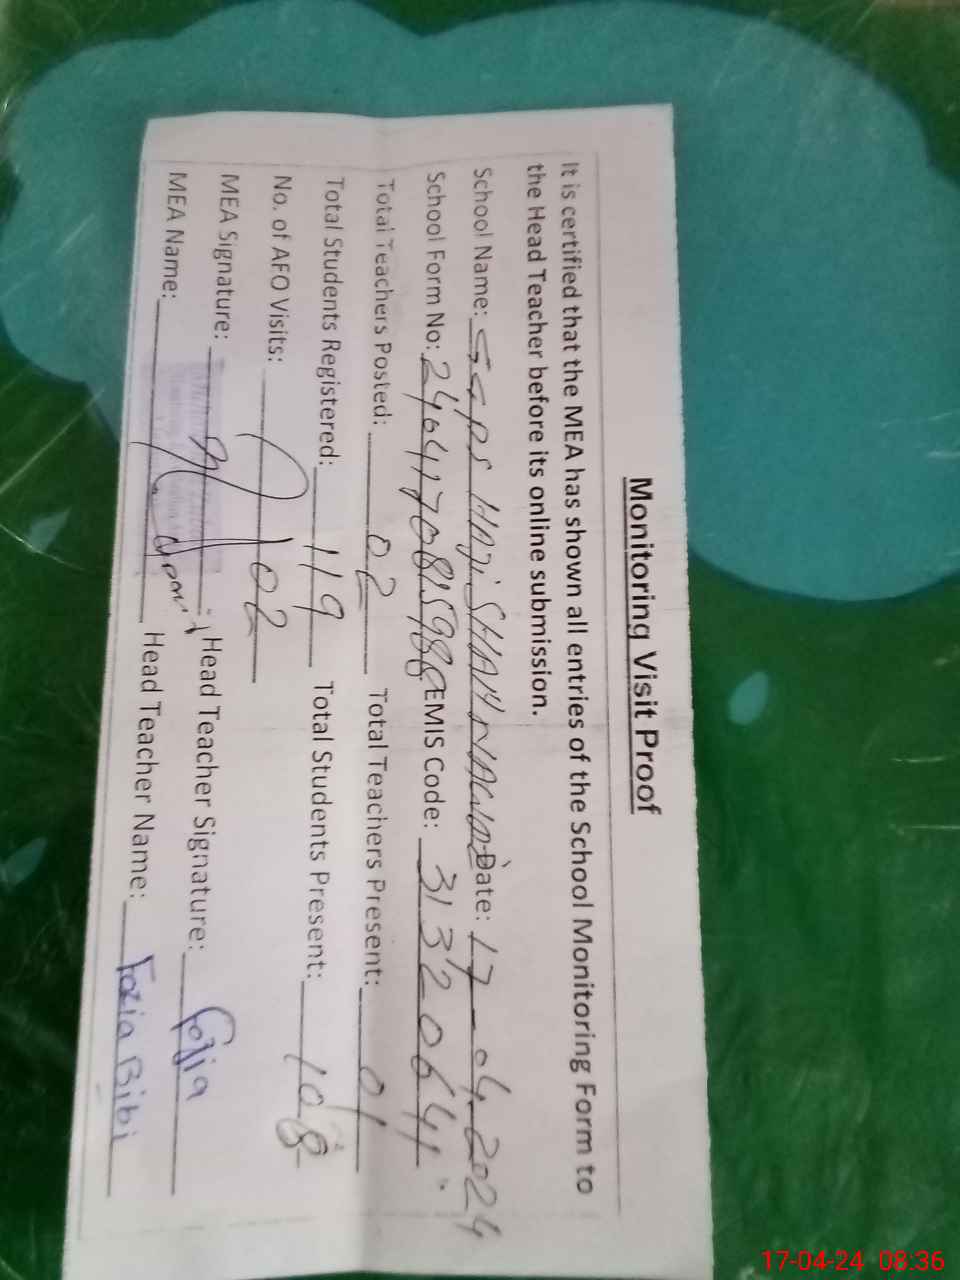 Monitoring Visit Proof
It is certified that the MEA has shown all entries of the School Monitoring Form to
the Head Teacher before its online submission.
School Name: GGPS HAJI SHAH NAWAZ Date: 17-04-2024
School Form No: EMIS Code: 31320641
Total Teachers Posted: 02 Total Teachers Present: 01
Total Students Registered: 119 Total Students Present: 108
No. of AFO Visits: 02
MEA Signature: Head Teacher Signature: Fozia
MEA Name: Head Teacher Name: Fozia Bibi
17-04-24 08:36